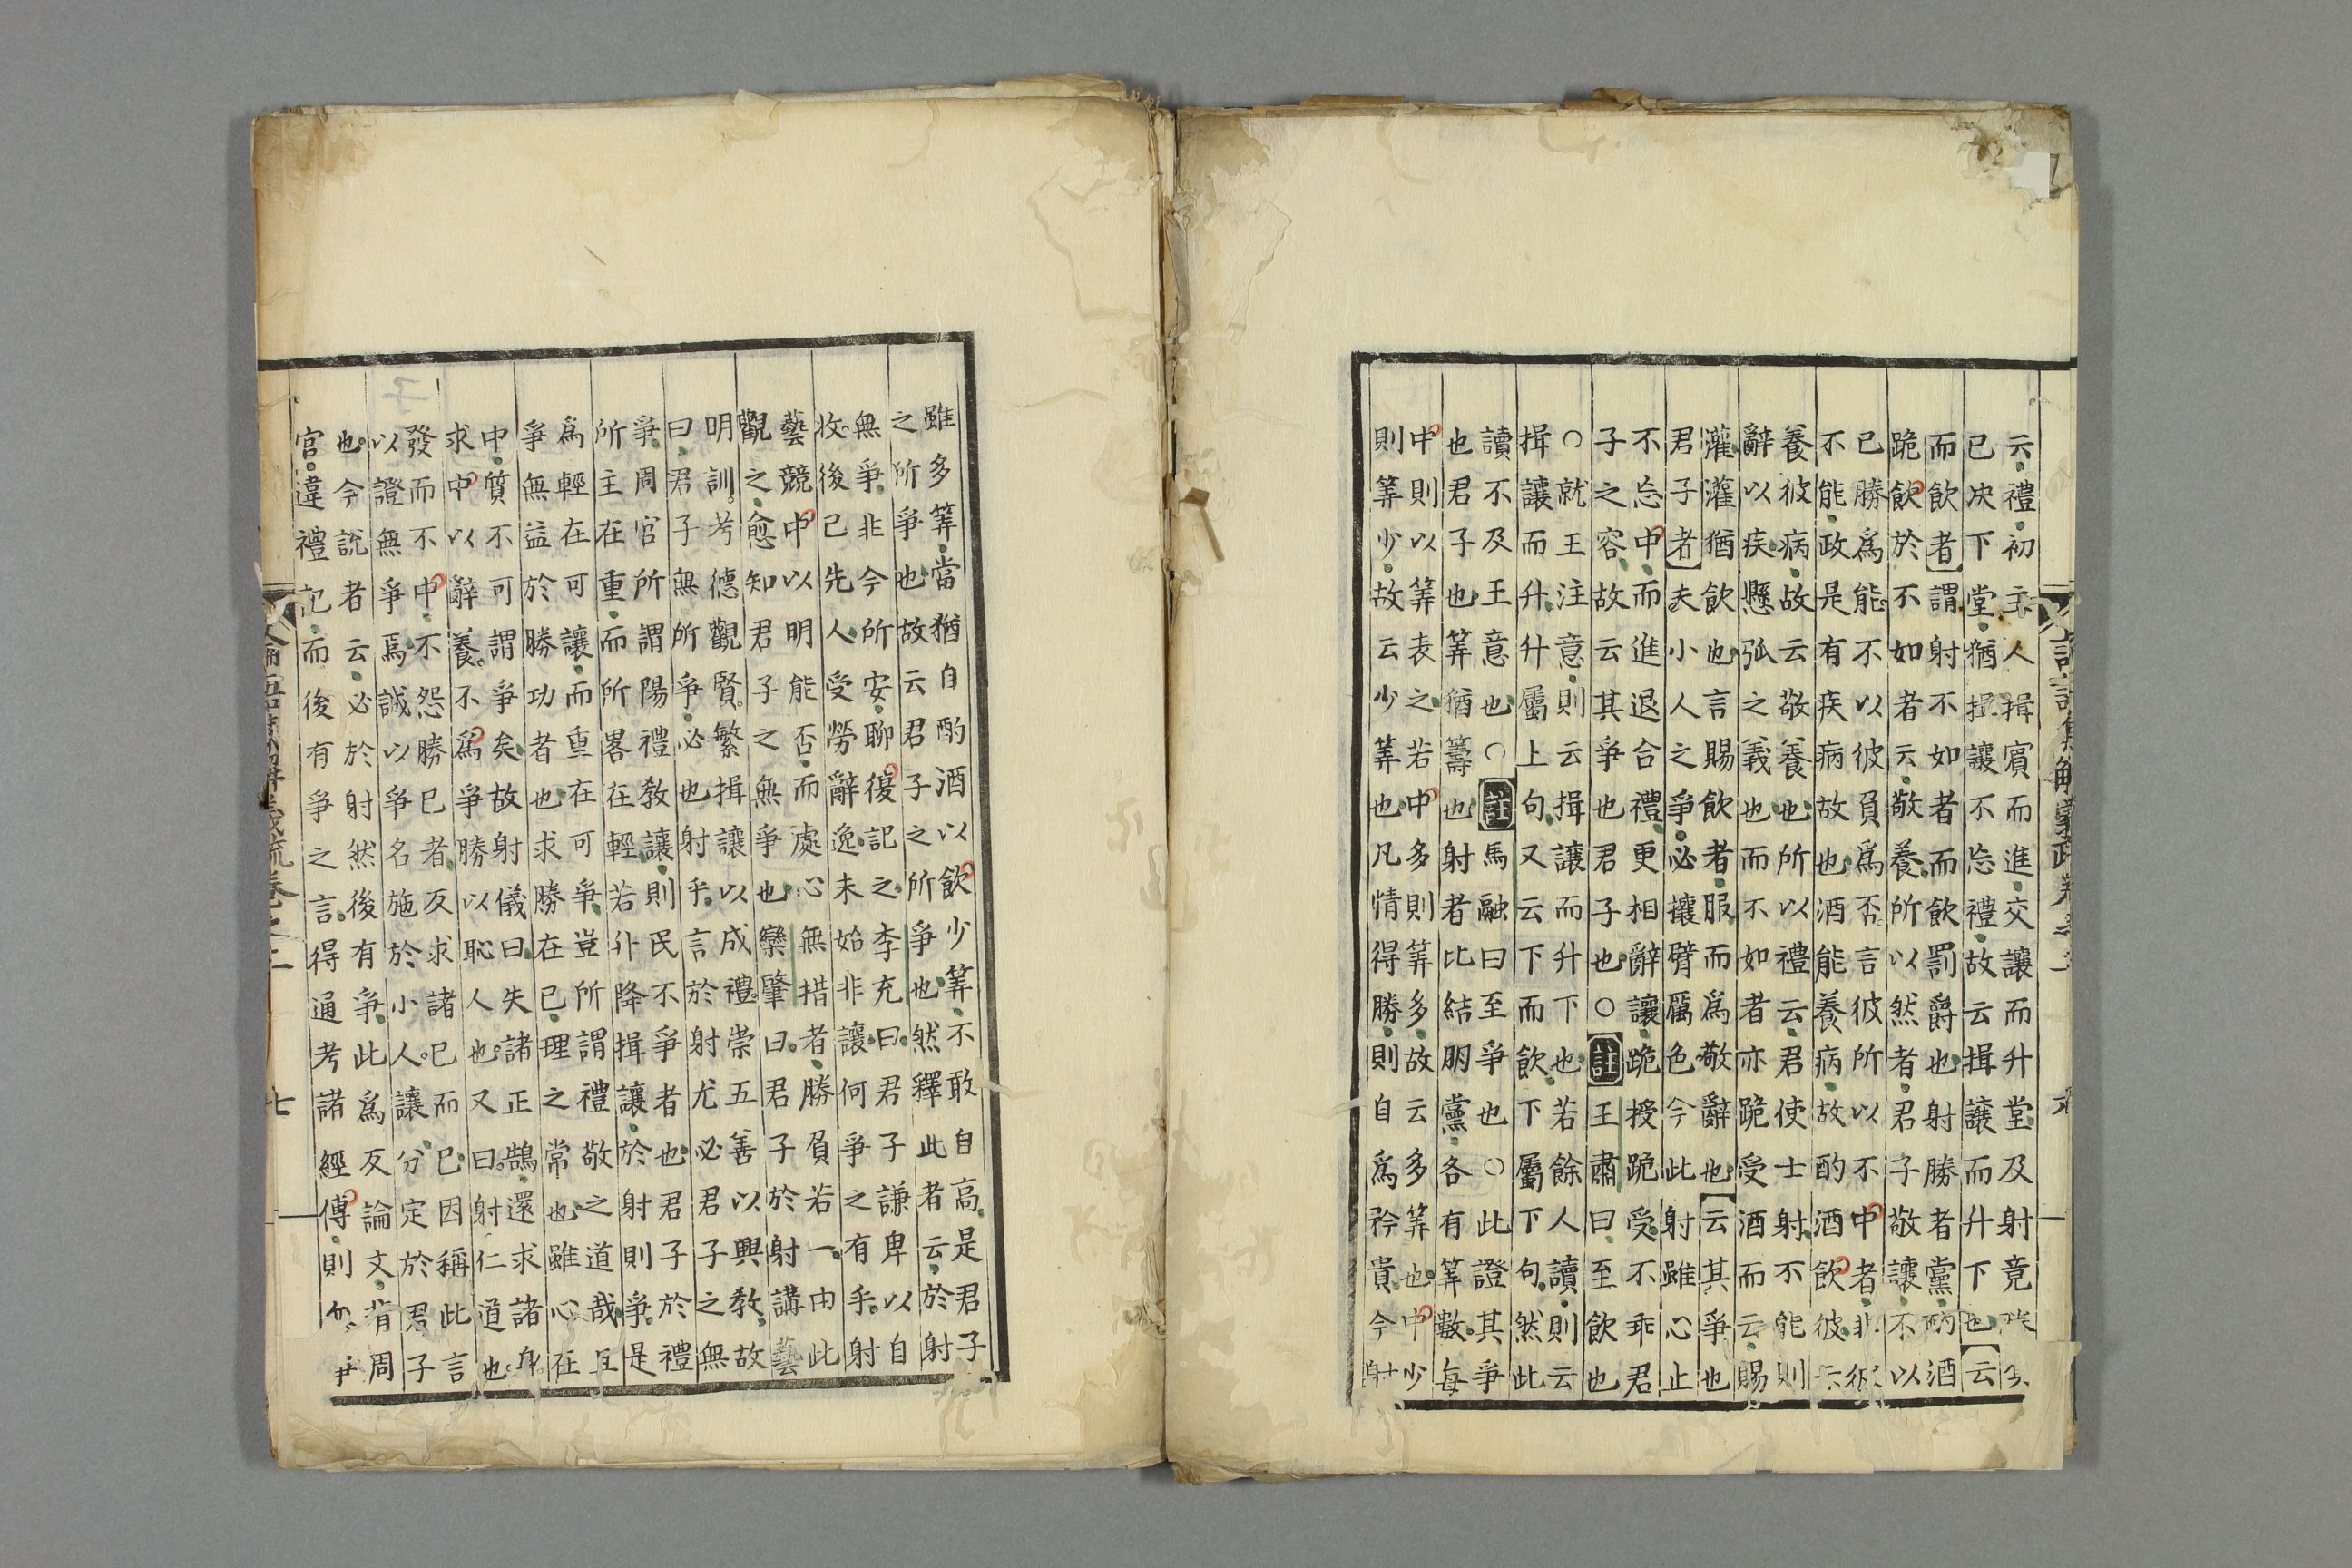 云禮初主人揖賓而進交讓而升堂及射竟
已决下堂猶揖讓不忘禮故云揖讓而升下也云
而飲者謂射不如者而飲罰爵也射勝者黨酌酒
跪飲於不如者云敬養所以然者君子敬讓不以
已勝爲能不以彼負爲否言彼所以不中者非彼
不能政是有疾病故也酒能養病故酌酒飲彼示
養彼病故云敬養也所以禮云君使士射不能則
辭以疾懸弧之義也而不如者亦跪受酒而云賜
灌灌猶飲也言賜飲者服而爲敬辭也云其爭也
君子者夫小人之爭必攘臂厲色今此射雖心止
不忘中而進退合禮更相辭讓跪授跪受不乖君
子之容故云其爭也君子也○註王肅曰至飲也
○就王注意則云揖讓而升下也若餘人讀則云
揖讓而升升屬上句又云下而飲下屬下句然此
讀不及王意也○註馬融曰至爭也○此證其爭
也君子也筭猶籌也射者比結朋黨各有筭數每
中則以筭表之若中多則筭多故云多筭也中少
則筭少故云少筭也凡情得勝則自爲矜貴今射
雖多筭當猶自酌酒以飲少筭不敢自高是君子
之所爭也故云君子之所爭也然釋此者云於射
無爭非今所安聊復記之李充曰君子謙卑以自
收後己先人受勞辭逸未始非讓何爭之有乎射
藝競中以明能否而處心無措者勝負若一由此
觀之愈知君子之無爭也欒肇曰君子於射講藝
明訓考德觀賢繁揖讓以成禮崇五善以興教故
曰君子無所爭必也射乎言於射尤必君子之無
爭周官所謂陽禮教讓則民不爭者也君子於禮
所主在重而所畧在輕若升降揖讓於射則爭是
爲輕在可讓而重在可爭豈所謂禮敬之道哉且
爭無益於勝功者也求勝在已理之常也雖心在
中質不可謂爭矣故射儀曰失諸正鵠還求諸身
求中以辭養不爲爭勝以恥人也又曰射仁道也
發而不中不怨勝已者反求諸已而已因稱此言
以證無爭焉誠以爭名施於小人讓分定於君子
也今說者云必於射然後有爭此爲反論文背周
官違禮記而後有爭之言得通考諸經傳則
七